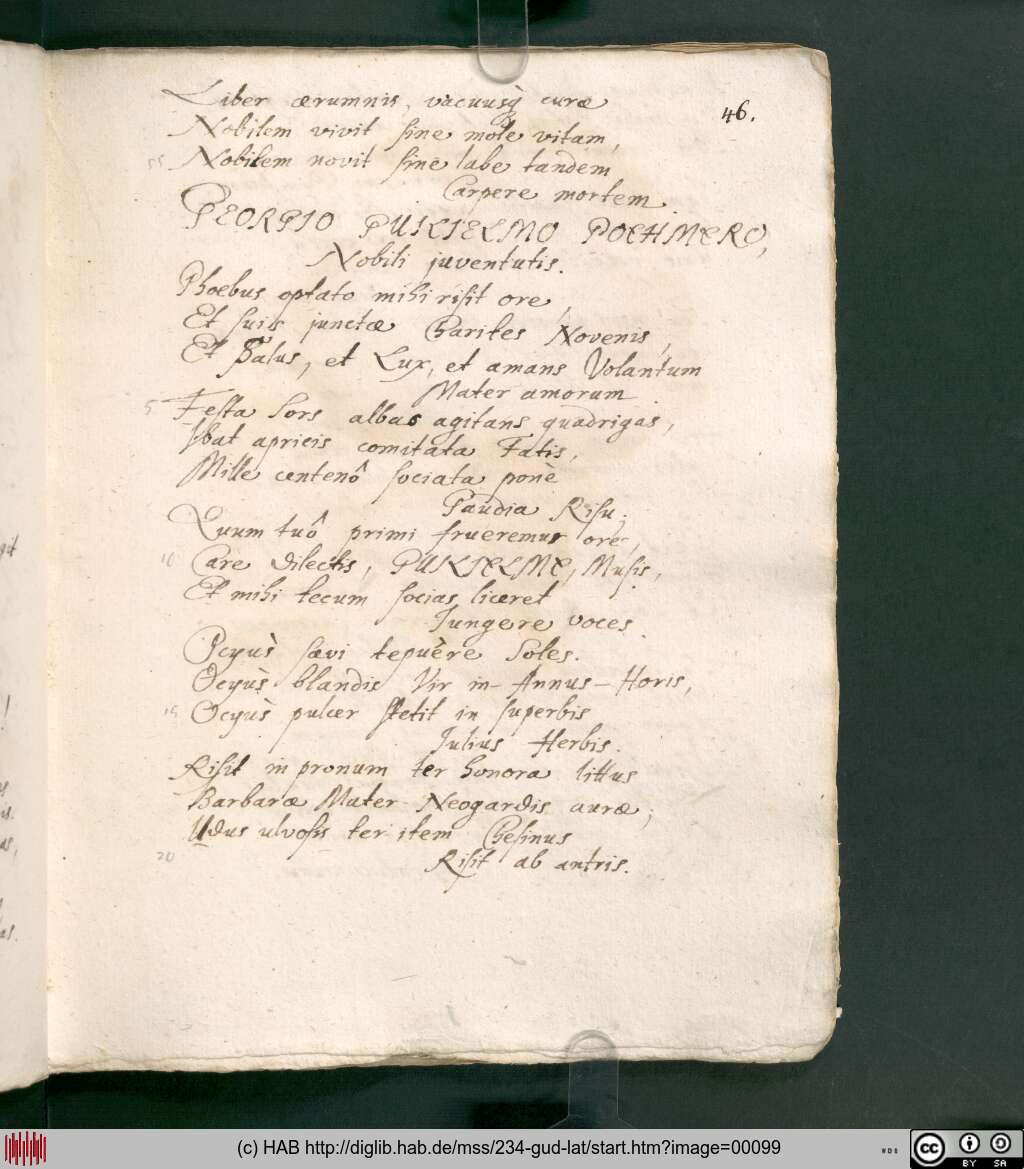 46.
Liber ærumnis, vacuusq́ curæ
Nobilem vivit sine mole vitam,
55 Nobilem novit sine labe tandem
Carpere mortem.
GEORGIO GUILIELMO POEHMERO,
Nobili juventutis.
Phoebus optato mihi risit ore,
Et suis junctæ Charites Novenis,
Et Salus, et Lux, et amans Volantum
Mater amorum
5 Festa Sors albas agitans quadrigas,
Ibat apricis comitata Fatis,
Mille centenô sociata ponè
Gaudia Risu;
Quum tuô primi frueremur ore,
10 Care dilectis, GUILIELME, Musis,
Et mihi tecum socias liceret
Jungere voces.
Ocyùs sævi tepuêre Soles.
Ocyùs blandis Vir in-Annus-Horis,
15 Ocyùs pulcer stetit in superbis
Julius Herbis.
Risit in pronum ter honora littus
Barbaræ Mater Neogardis auræ;
Udus ulvosis ter item Chesinus
20 Risit ab antris.
(c) HAB http://diglib.hab.de/mss/234-gud-lat/start.htm?image=00099
cc BY SA